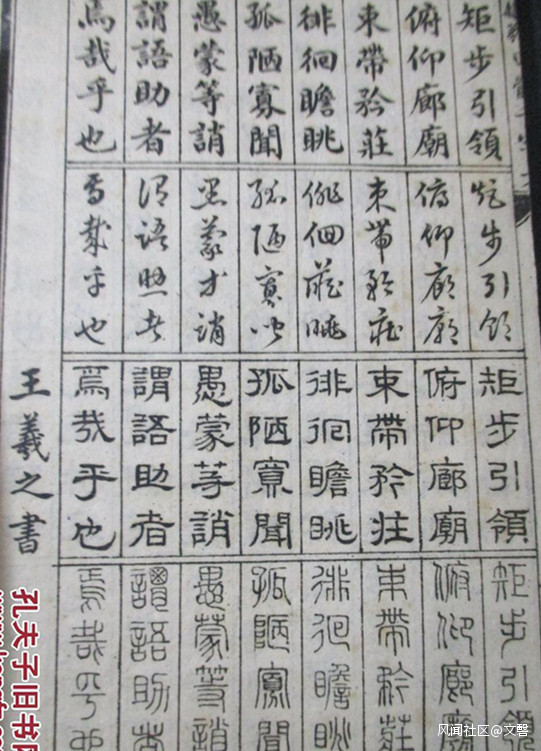 矩步引領
俯仰廊廟
束帶矜莊
徘徊瞻眺
孤陋寡聞
愚蒙等誚
謂語助者
焉哉乎也
矩步引領
俯仰廊廟
束帶矜莊
徘徊瞻眺
孤陋寡聞
愚蒙等誚
謂語助者
焉哉乎也
矩步引領
俯仰廊廟
束帶矜莊
徘徊瞻眺
孤陋寡聞
愚蒙等誚
謂語助者
焉哉乎也
矩步引領
俯仰廊廟
束帶矜莊
徘徊瞻眺
孤陋寡聞
愚蒙等誚
謂語助者
焉哉乎也
王羲之書
孔夫子旧书网
风闻社区@文磬